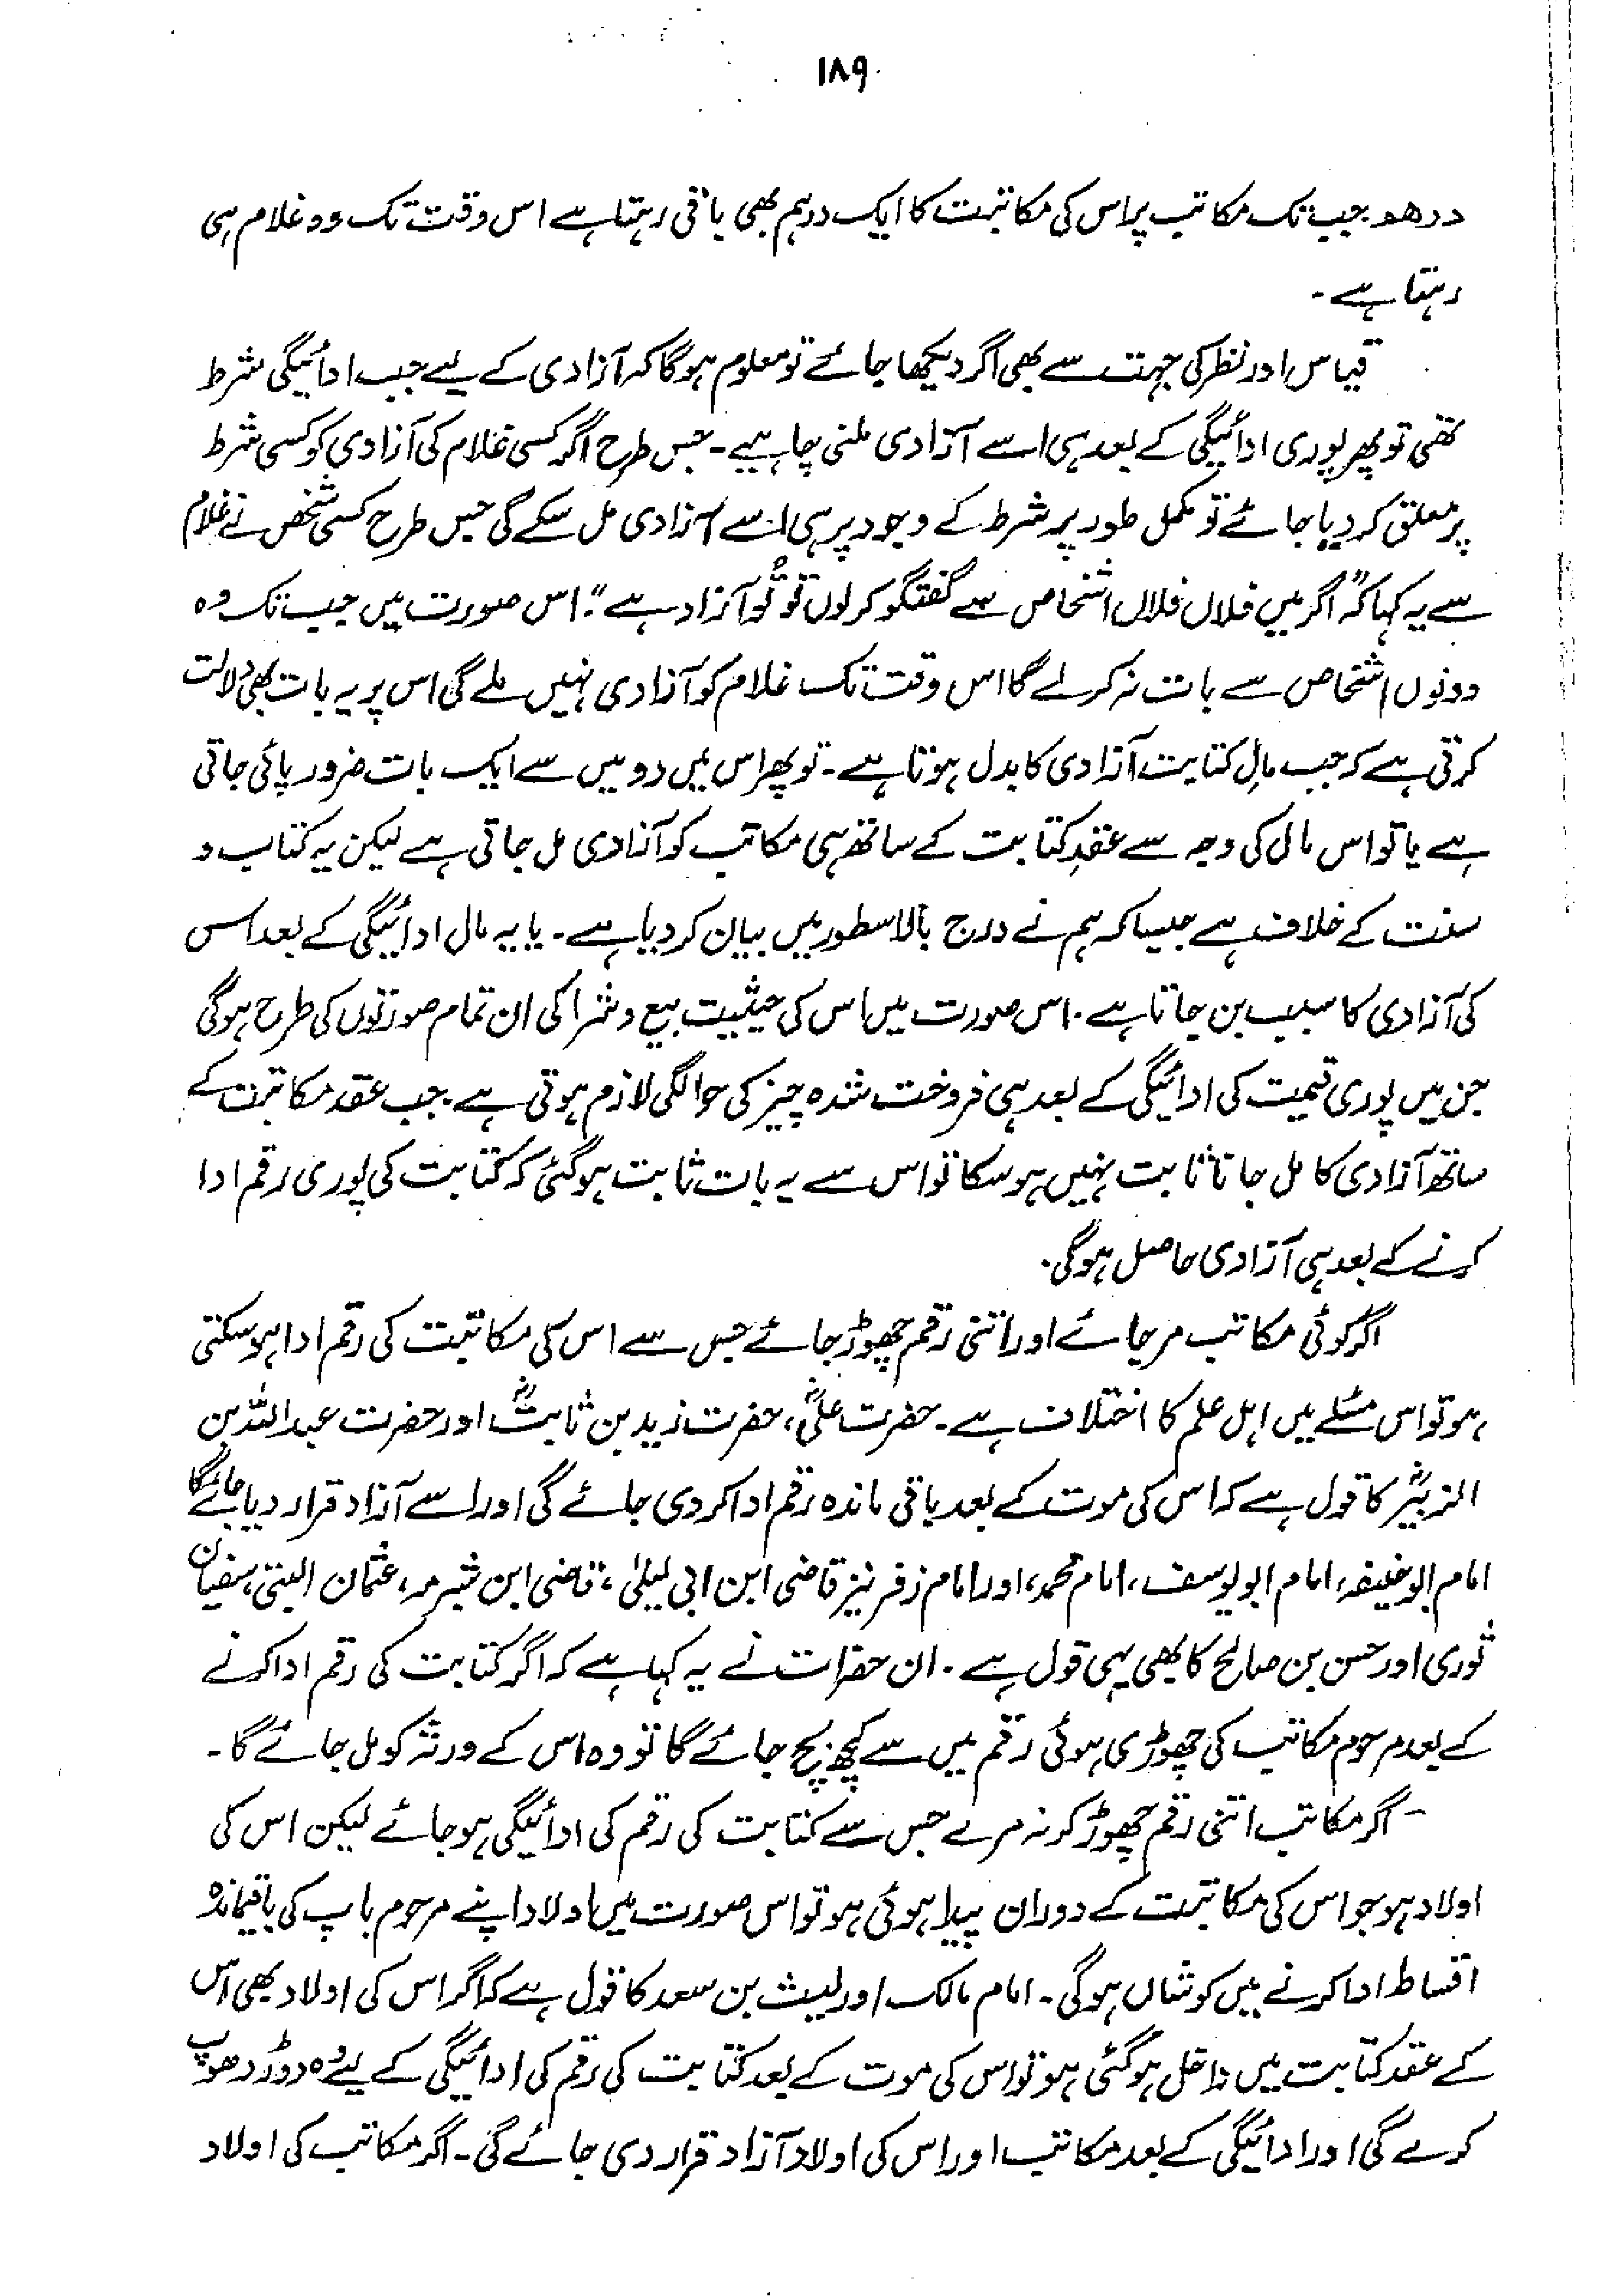 ۱۸۹
درھم جب تک مکاتب پر اس کی مکاتبت کا ایک درہم بھی باقی رہتا ہے اس وقت تک وہ غلام ہی
رہتا ہے۔
قیاس اور نظر کی جہت سے بھی اگر دیکھا جائے تو معلوم ہوگا کہ آزادی کے لیے جب ادائیگی شرط
تھی تو پھر پوری ادائیگی کے بعد ہی اسے آزادی ملنی چاہیے۔ جس طرح اگر کسی غلام کی آزادی کو کسی شرط
پر معلق کر دیا جائے تو مکمل طور پر شرط کے وجود پر ہی اسے آزادی مل سکے گی جس طرح کسی شخص نے غلام
سے یہ کہا کہ "اگر میں فلاں فلاں اشخاص سے گفتگو کر لوں تو تُو آزاد ہے"۔ اس صورت میں جب تک وہ
دونوں اشخاص سے بات نہ کرلے گا اس وقت تک غلام کو آزادی نہیں ملے گی اس پر یہ بات بھی دلالت
کرتی ہے کہ جب مالِ کتابت آزادی کا بدل ہوتا ہے۔ تو پھر اس میں دو میں سے ایک بات ضرور پائی جاتی
ہے یا تو اس مال کی وجہ سے عقدِ کتابت کے ساتھ ہی مکاتب کو آزادی مل جاتی ہے لیکن یہ کتاب و
سنت کے خلاف ہے جیسا کہ ہم نے درج بالا سطور میں بیان کر دیا ہے۔ یا یہ مال ادائیگی کے بعد اس
کی آزادی کا سبب بن جاتا ہے۔ اس صورت میں اس کی حیثیت بیع و شرا کی ان تمام صورتوں کی طرح ہوگی
جن میں پوری قیمت کی ادائیگی کے بعد ہی فروخت شدہ چیز کی حوالگی لازم ہوتی ہے۔ جب عقد مکاتبت کے
ساتھ آزادی کا مل جانا ثابت نہیں ہو سکا تو اس سے یہ بات ثابت ہوگئی کہ کتابت کی پوری رقم ادا
کرنے کے بعد ہی آزادی حاصل ہوگی۔
اگر کوئی مکاتب مر جائے اور اتنی رقم چھوڑ جائے جس سے اس کی مکاتبت کی رقم ادا ہو سکتی
ہو تو اس مسئلے میں اہل علم کا اختلاف ہے۔ حضرت علیؓ، حضرت زید بن ثابتؓ اور حضرت عبداللہ بن
الزبیرؓ کا قول ہے کہ اس کی موت کے بعد باقی ماندہ رقم ادا کر دی جائے گی اور اسے آزاد قرار دیا جائے گا
امام ابوحنیفہ، امام ابو یوسف، امام محمد، اور امام زفر نیز قاضی ابن ابی لیلیٰ، قاضی ابن شبرمہ، عثمان البتی، سفیان
ثوری اور حسن بن صالح کا بھی یہی قول ہے۔ ان حضرات نے یہ کہا ہے کہ اگر کتابت کی رقم ادا کرنے
کے بعد مرحوم مکاتب کی چھوڑی ہوئی رقم میں سے کچھ بچ جائے گا تو وہ اس کے ورثہ کو مل جائے گا۔
اگر مکاتب اتنی رقم چھوڑ کر نہ مرے جس سے کتابت کی رقم کی ادائیگی ہو جائے لیکن اس کی
اولاد ہو جو اس کی مکاتبت کے دوران پیدا ہوئی ہو تو اس صورت میں اولاد اپنے مرحوم باپ کی باقیماندہ
اقساط ادا کرنے میں کوشاں ہوگی۔ امام مالک اور لیث بن سعد کا قول ہے کہ اگر اس کی اولاد بھی اس
کے عقد کتابت میں داخل ہوگئی ہو تو اس کی موت کے بعد کتابت کی رقم کی ادائیگی کے لیے وہ دوڑ دھوپ
کرے گی اور ادائیگی کے بعد مکاتب اور اس کی اولاد آزاد قرار دی جائے گی۔ اگر مکاتب کی اولاد